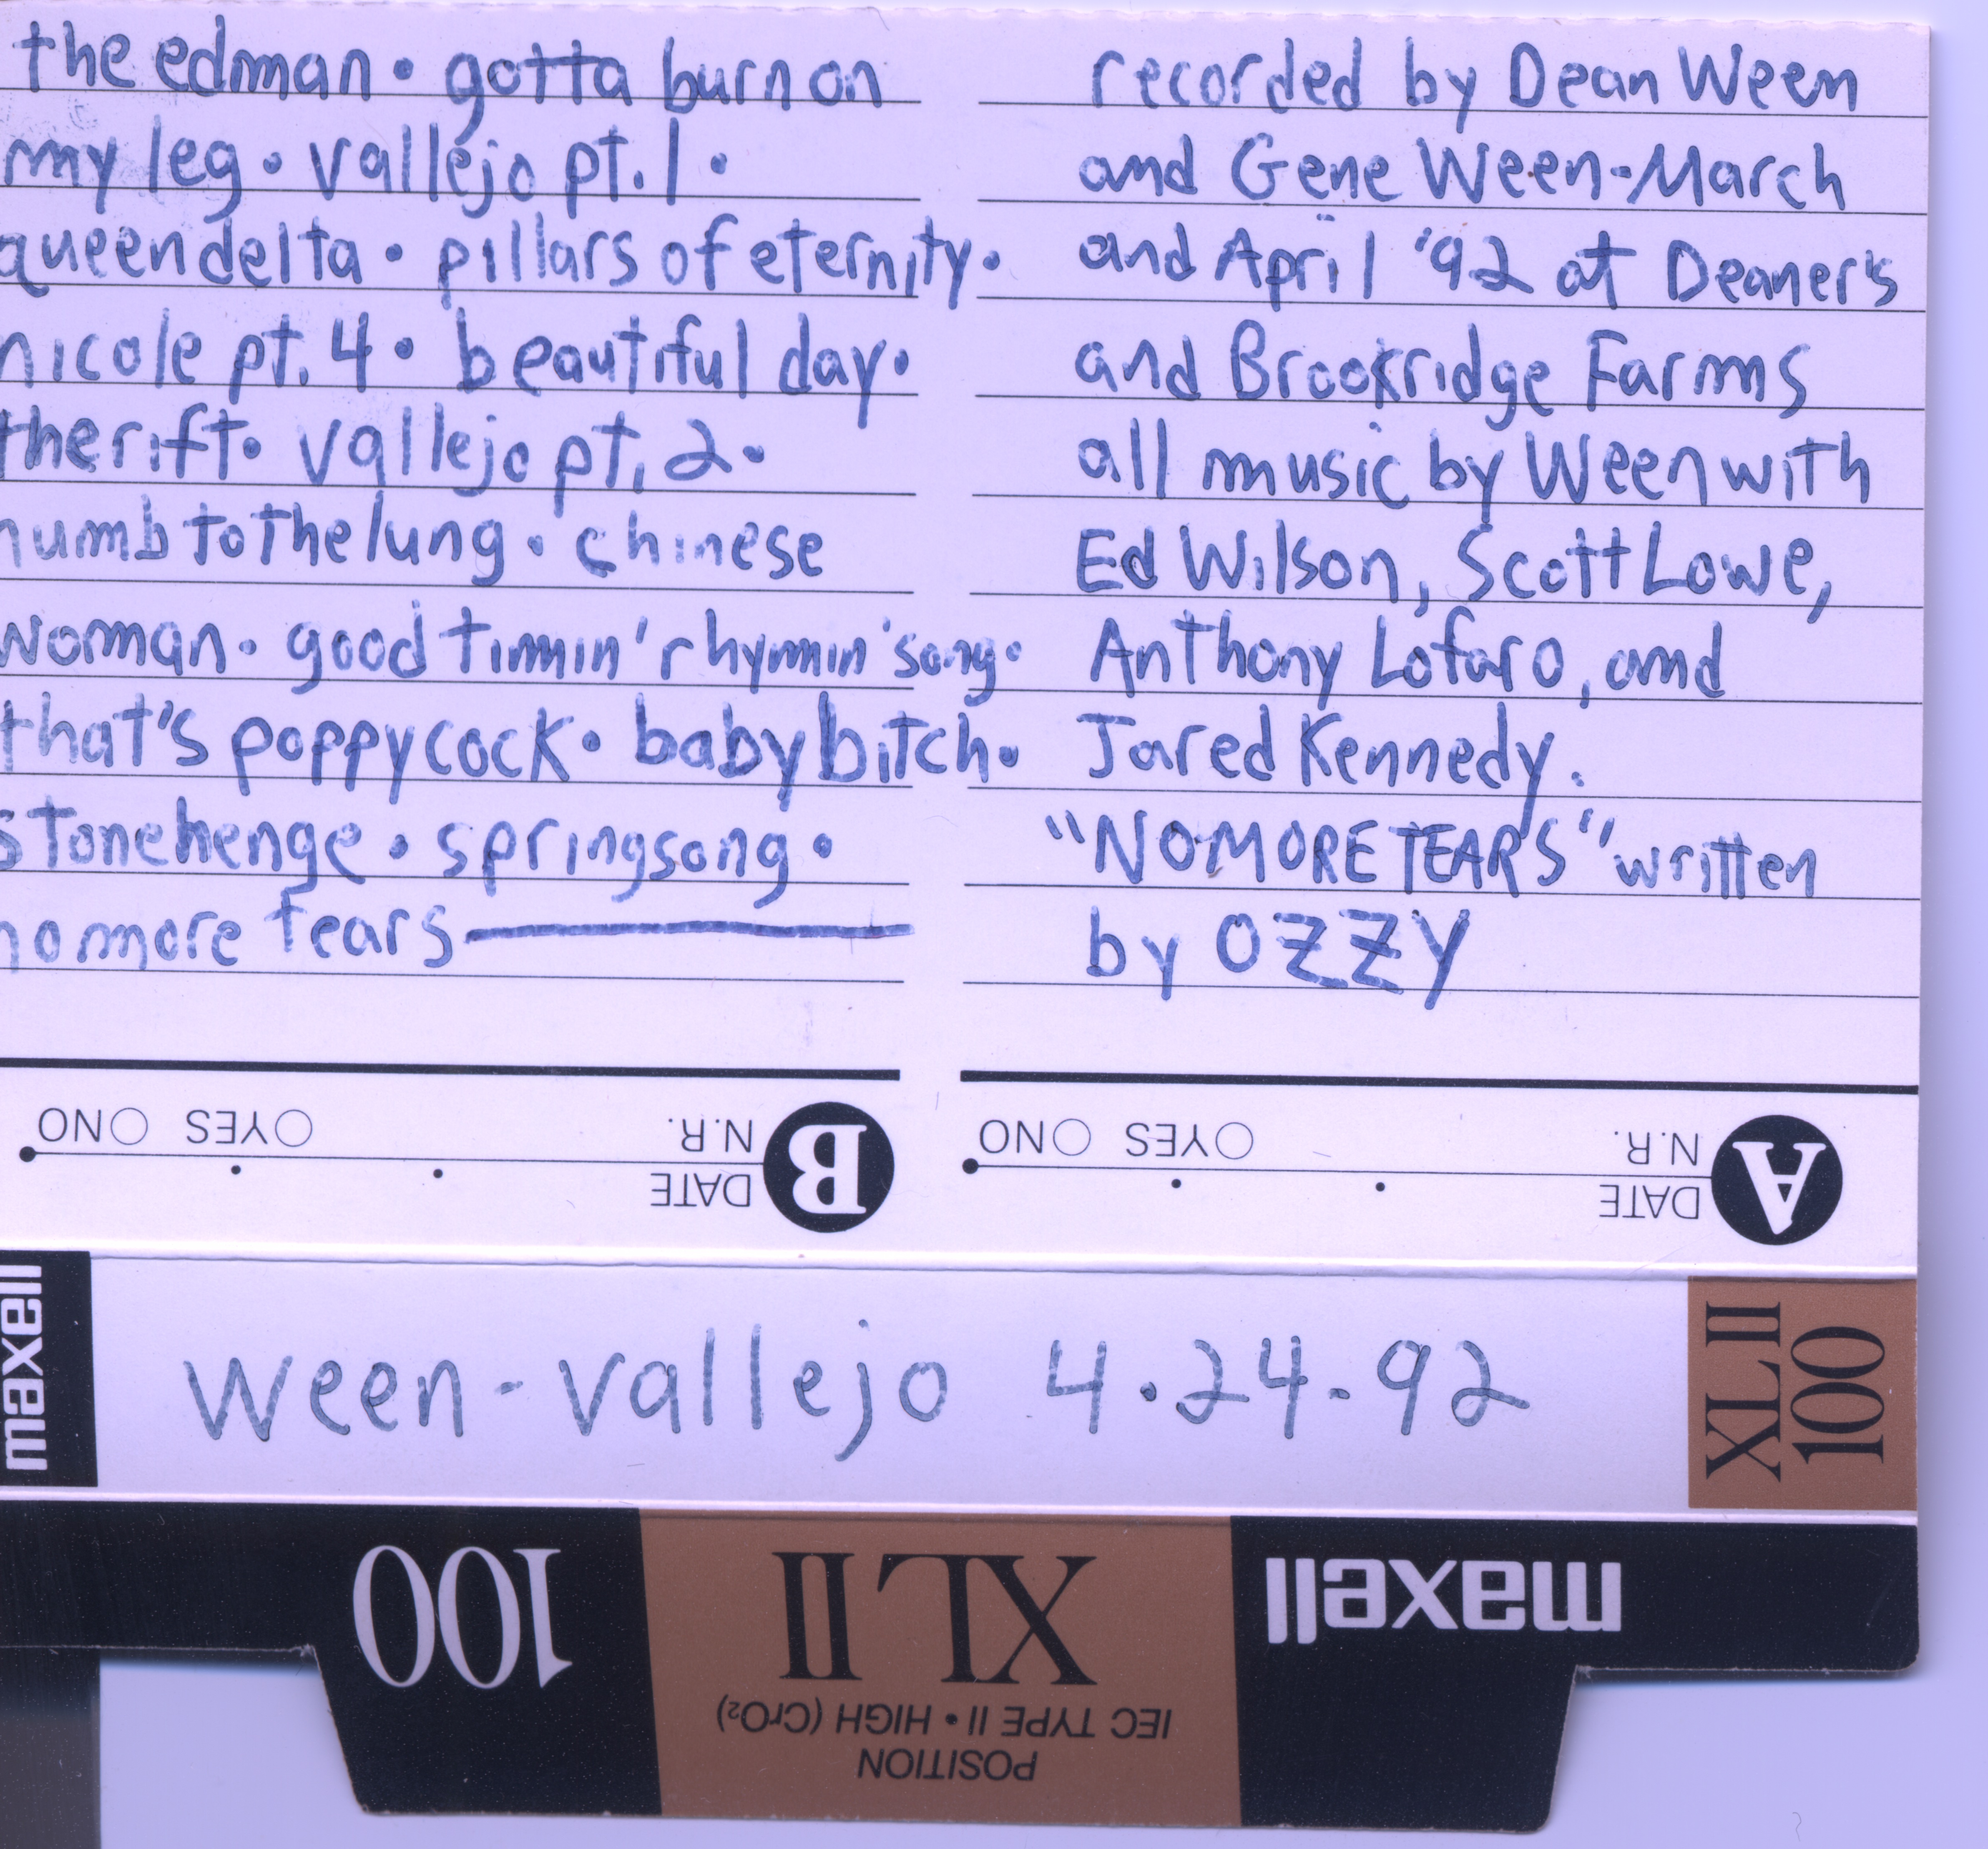 the edman • gotta burn on
my leg • vallejo pt. 1 •
queen delta • pillars of eternity •
nicole pt. 4 • beautiful day •
the rift • vallejo pt. 2 •
numb to the lung • chinese
woman • good timin' rhymin' song •
that's poppycock • baby bitch •
stonehenge • springsong •
no more tears
recorded by Dean Ween
and Gene Ween - March
and April '92 at Deaner's
and Brookridge Farms
all music by Ween with
Ed Wilson, Scott Lowe,
Anthony Lofaro, and
Jared Kennedy.
"NO MORE TEARS" written
by OZZY
B
DATE
N.R. ○YES ○NO
A
DATE
N.R. ○YES ○NO
maxell
ween - vallejo 4.24-92
XLII
100
maxell
XLII
100
IEC TYPE II • HIGH (CrO₂)
POSITION